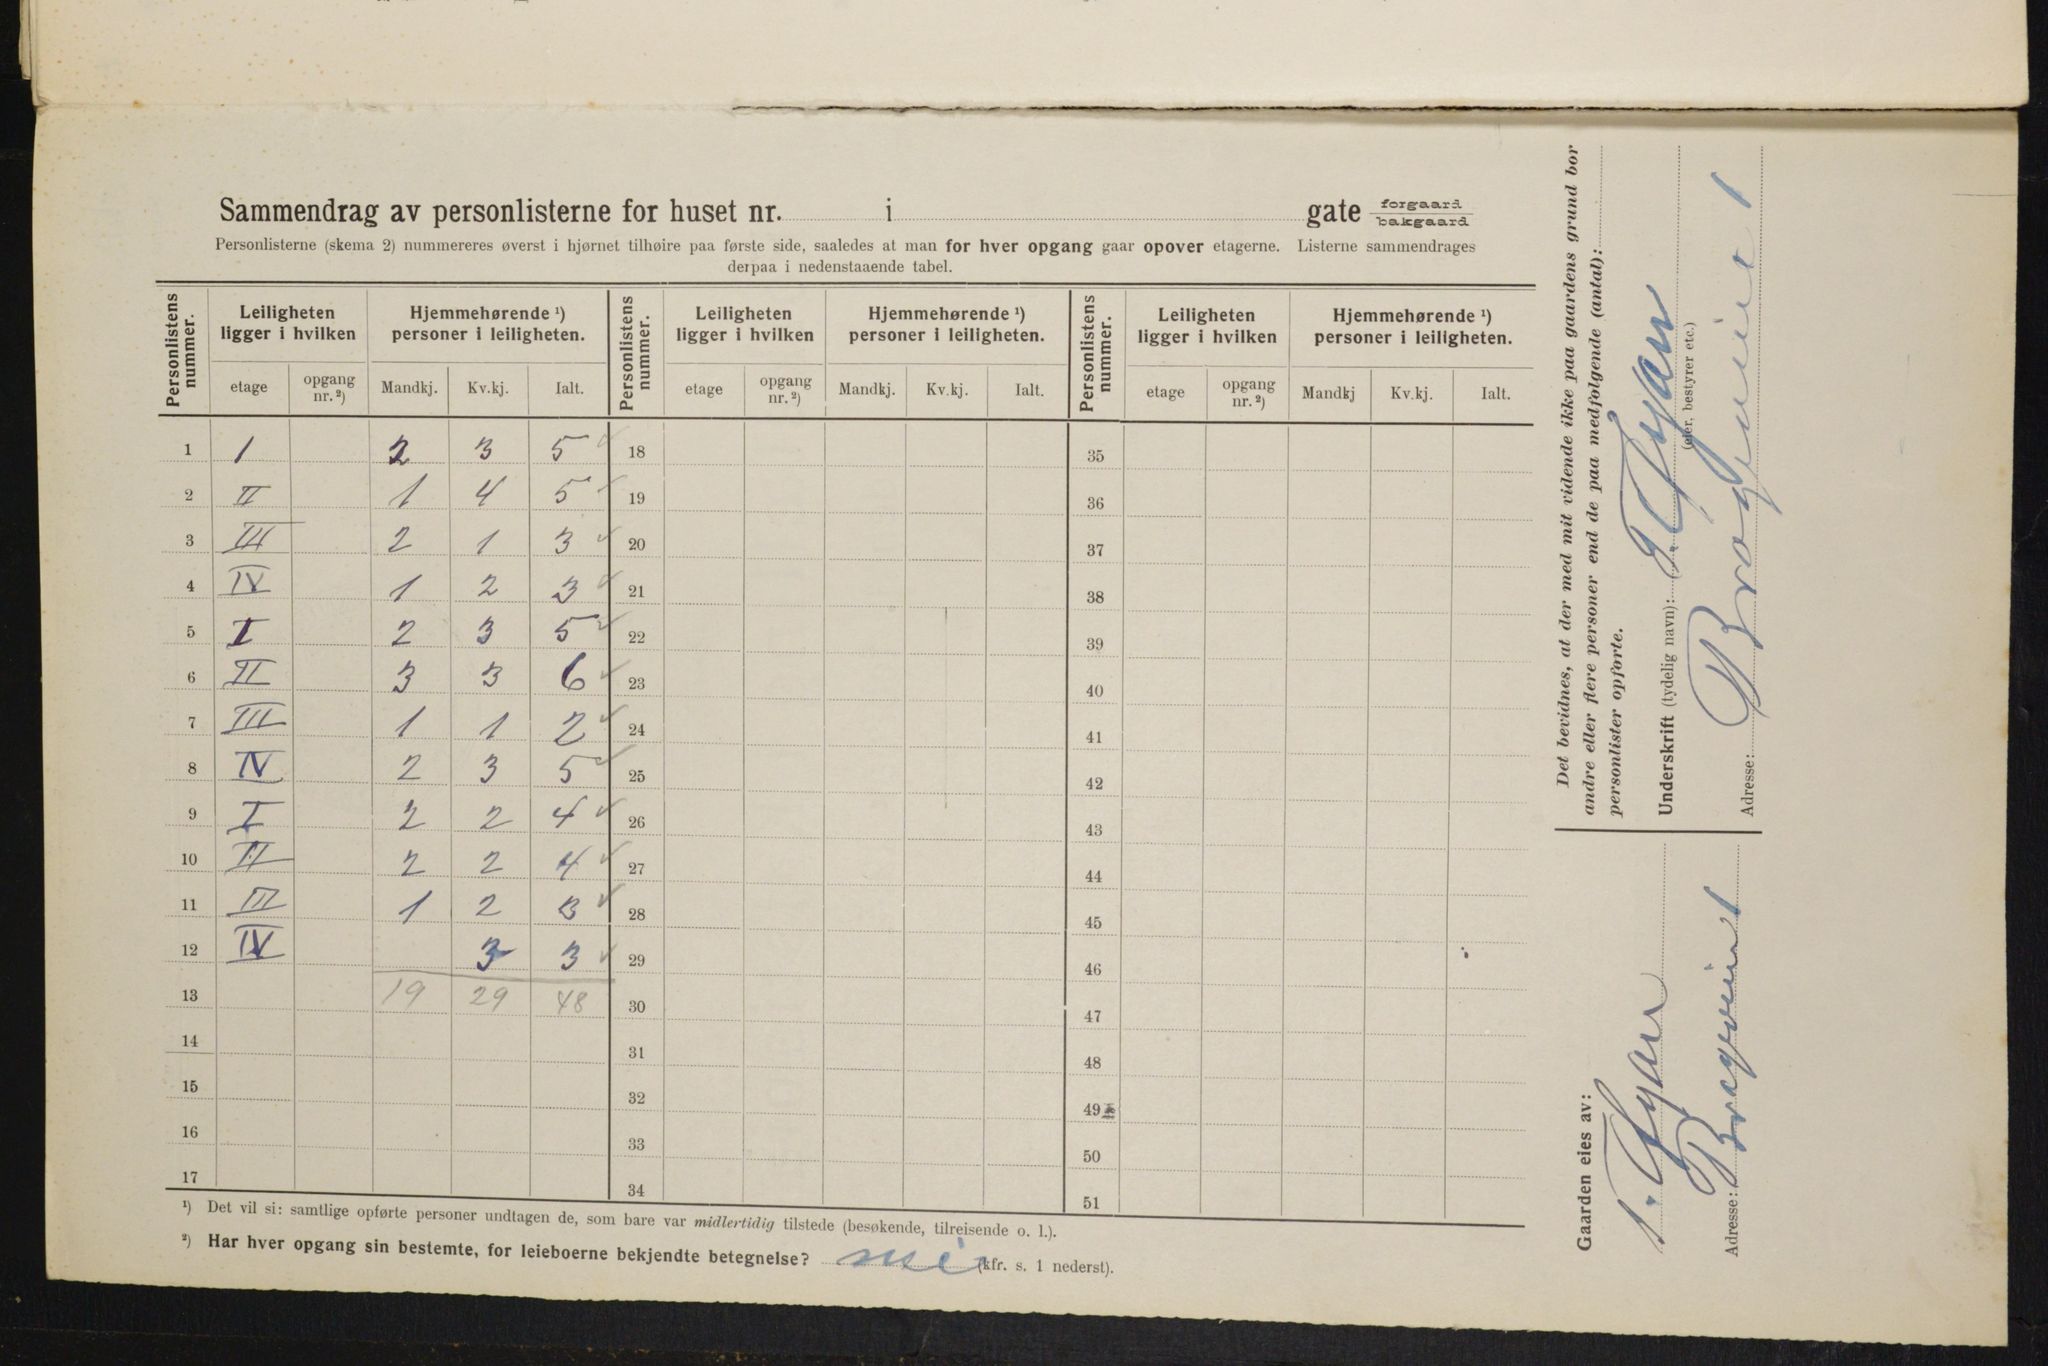 Sammendrag av personlisterne for huset nr. i gate forgaard bakgaard
Personlisterne (skema 2) nummereres øverst i hjørnet tilhøire paa første side, saaledes at man for hver opgang gaar opover etagerne. Listerne sammendrages
derpaa i nedenstaaende tabel.
Personlistens nummer. Leiligheten ligger i hvilken Hjemmehørende ¹) personer i leiligheten. Personlistens nummer. Leiligheten ligger i hvilken Hjemmehørende ¹) personer i leiligheten. Personlistens nummer. Leiligheten ligger i hvilken Hjemmehørende ¹) personer i leiligheten.
etage opgang nr. ²) Mandkj. Kv.kj. Ialt. etage opgang nr. ²) Mandkj. Kv.kj. Ialt. etage opgang nr. ²) Mandkj Kv.kj. Ialt.
1 I 2 3 5 18 35
2 II 1 4 5 19 36
3 III 2 1 3 20 37
4 IV 1 2 3 21 38
5 I 2 3 5 22 39
6 II 3 3 6 23 40
7 III 1 1 2 24 41
8 IV 2 3 5 25 42
9 I 2 2 4 26 43
10 II 2 2 4 27 44
11 III 1 2 3 28 45
12 IV 3 3 29 46
13 19 29 48 30 47
14 31 48
15 32 49
16 33 50
17 34 51
¹) Det vil si: samtlige opførte personer undtagen de, som bare var midlertidig tilstede (besøkende, tilreisende o. l.).
²) Har hver opgang sin bestemte, for leieboerne bekjendte betegnelse? (kfr. s. 1 nederst).
Det bevidnes, at der med mit vidende ikke paa gaardens grund bor
andre eller flere personer end de paa medfølgende (antal):
personlister opførte.
Underskrift (tydelig navn):
(eier, bestyrer etc.)
Adresse:
Gaarden eies av:
Adresse: